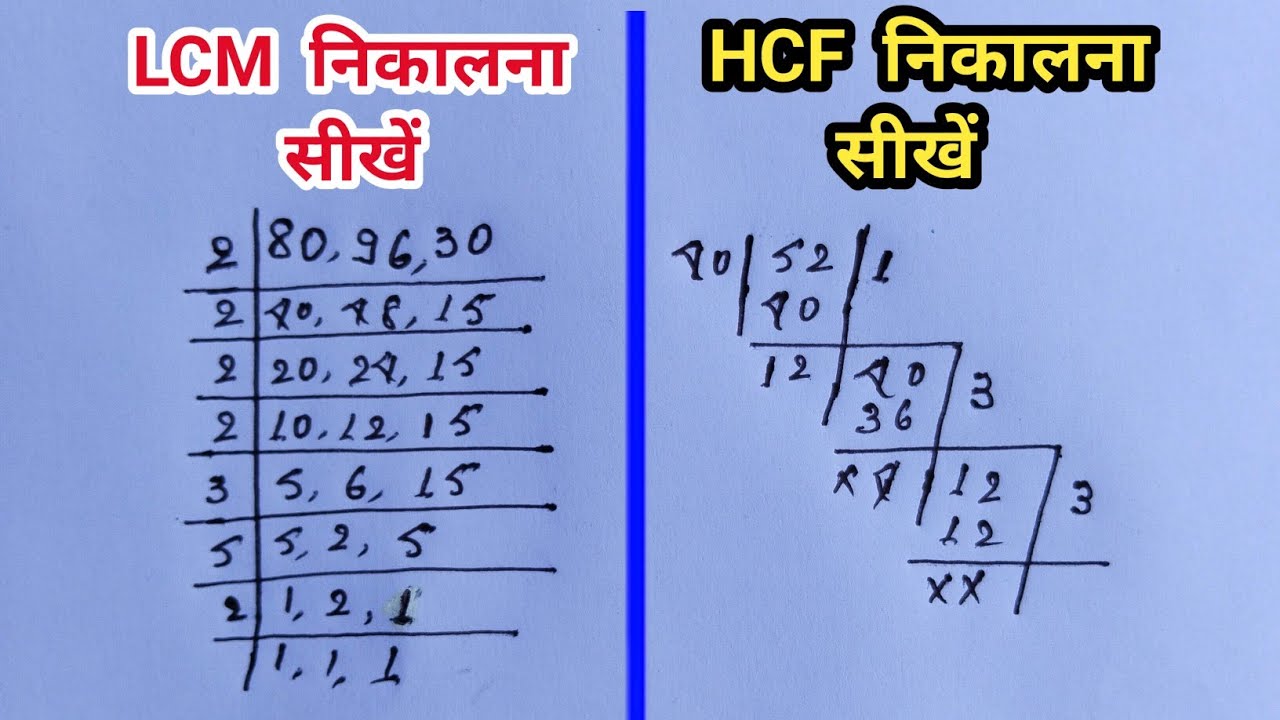 LCM निकालना
सीखें
2 80, 96, 30
2 40, 48, 15
2 20, 24, 15
2 10, 12, 15
3 5, 6, 15
5 5, 2, 5
2 1, 2, 1
1, 1, 1
HCF निकालना
सीखें
40 52 1
40
12 40 3
36
x 4 12 3
12
x x